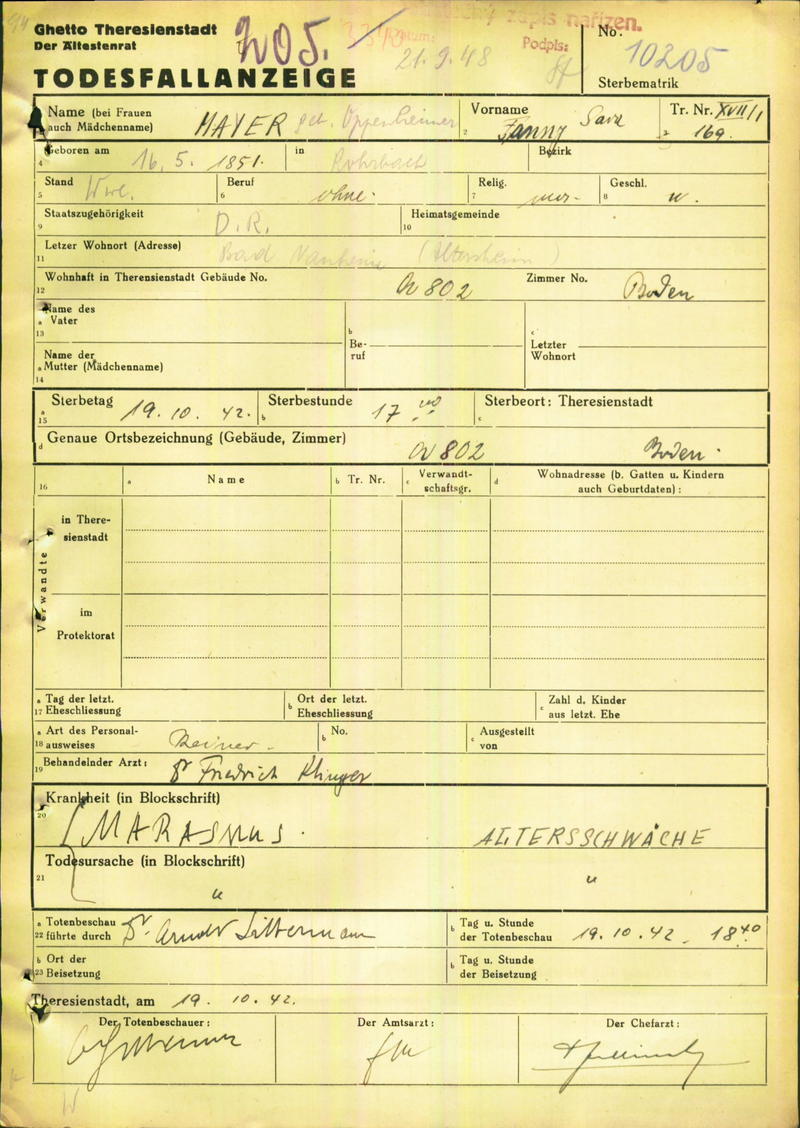 Ghetto Theresienstadt
Der Ältestenrat
TODESFALLANZEIGE
205.
21.9.48
zápis nařízen.
Podpis:
No.
10205
Sterbematrik
Name (bei Frauen auch Mädchenname) MAYER geb. Oppenheimer
2 Vorname Fanny Sara
Tr. Nr. XVII/1 169.
4 Geboren am 16. 5. 1851. in Rohrbach Bezirk
5 Stand Wwe.
6 Beruf ohne.
7 Relig. mos.
8 Geschl. w.
9 Staatszugehörigkeit D.R.
10 Heimatsgemeinde
11 Letzer Wohnort (Adresse) Bad Nauheim (Altersheim)
12 Wohnhaft in Therensienstadt Gebäude No. 802 Zimmer No. Boden
13 a Name des Vater
b Beruf
c Letzter Wohnort
14 a Name der Mutter (Mädchenname)
15 a Sterbetag 19. 10. 42.
b Sterbestunde 17
c Sterbeort: Theresienstadt
d Genaue Ortsbezeichnung (Gebäude, Zimmer) 802 Boden.
16 a Name
b Tr. Nr.
c Verwandtschaftsgr.
d Wohnadresse (b. Gatten u. Kindern auch Geburtdaten):
Verwandte
in Theresienstadt
im Protektorat
17 a Tag der letzt. Eheschliessung
b Ort der letzt. Eheschliessung
c Zahl d. Kinder aus letzt. Ehe
18 a Art des Personalausweises
b No.
c Ausgestellt von
19 Behandelnder Arzt: Dr Friedrich Klinger
20 Krankheit (in Blockschrift)
MARASMUS. ALTERSSCHWÄCHE
21 Todesursache (in Blockschrift)
" "
22 a Totenbeschau führte durch Dr.
b Tag u. Stunde der Totenbeschau 19. 10. 42. 18 40
23 b Ort der Beisetzung
b Tag u. Stunde der Beisetzung
Theresienstadt, am 19. 10. 42.
Der Totenbeschauer:
Der Amtsarzt:
Der Chefarzt: